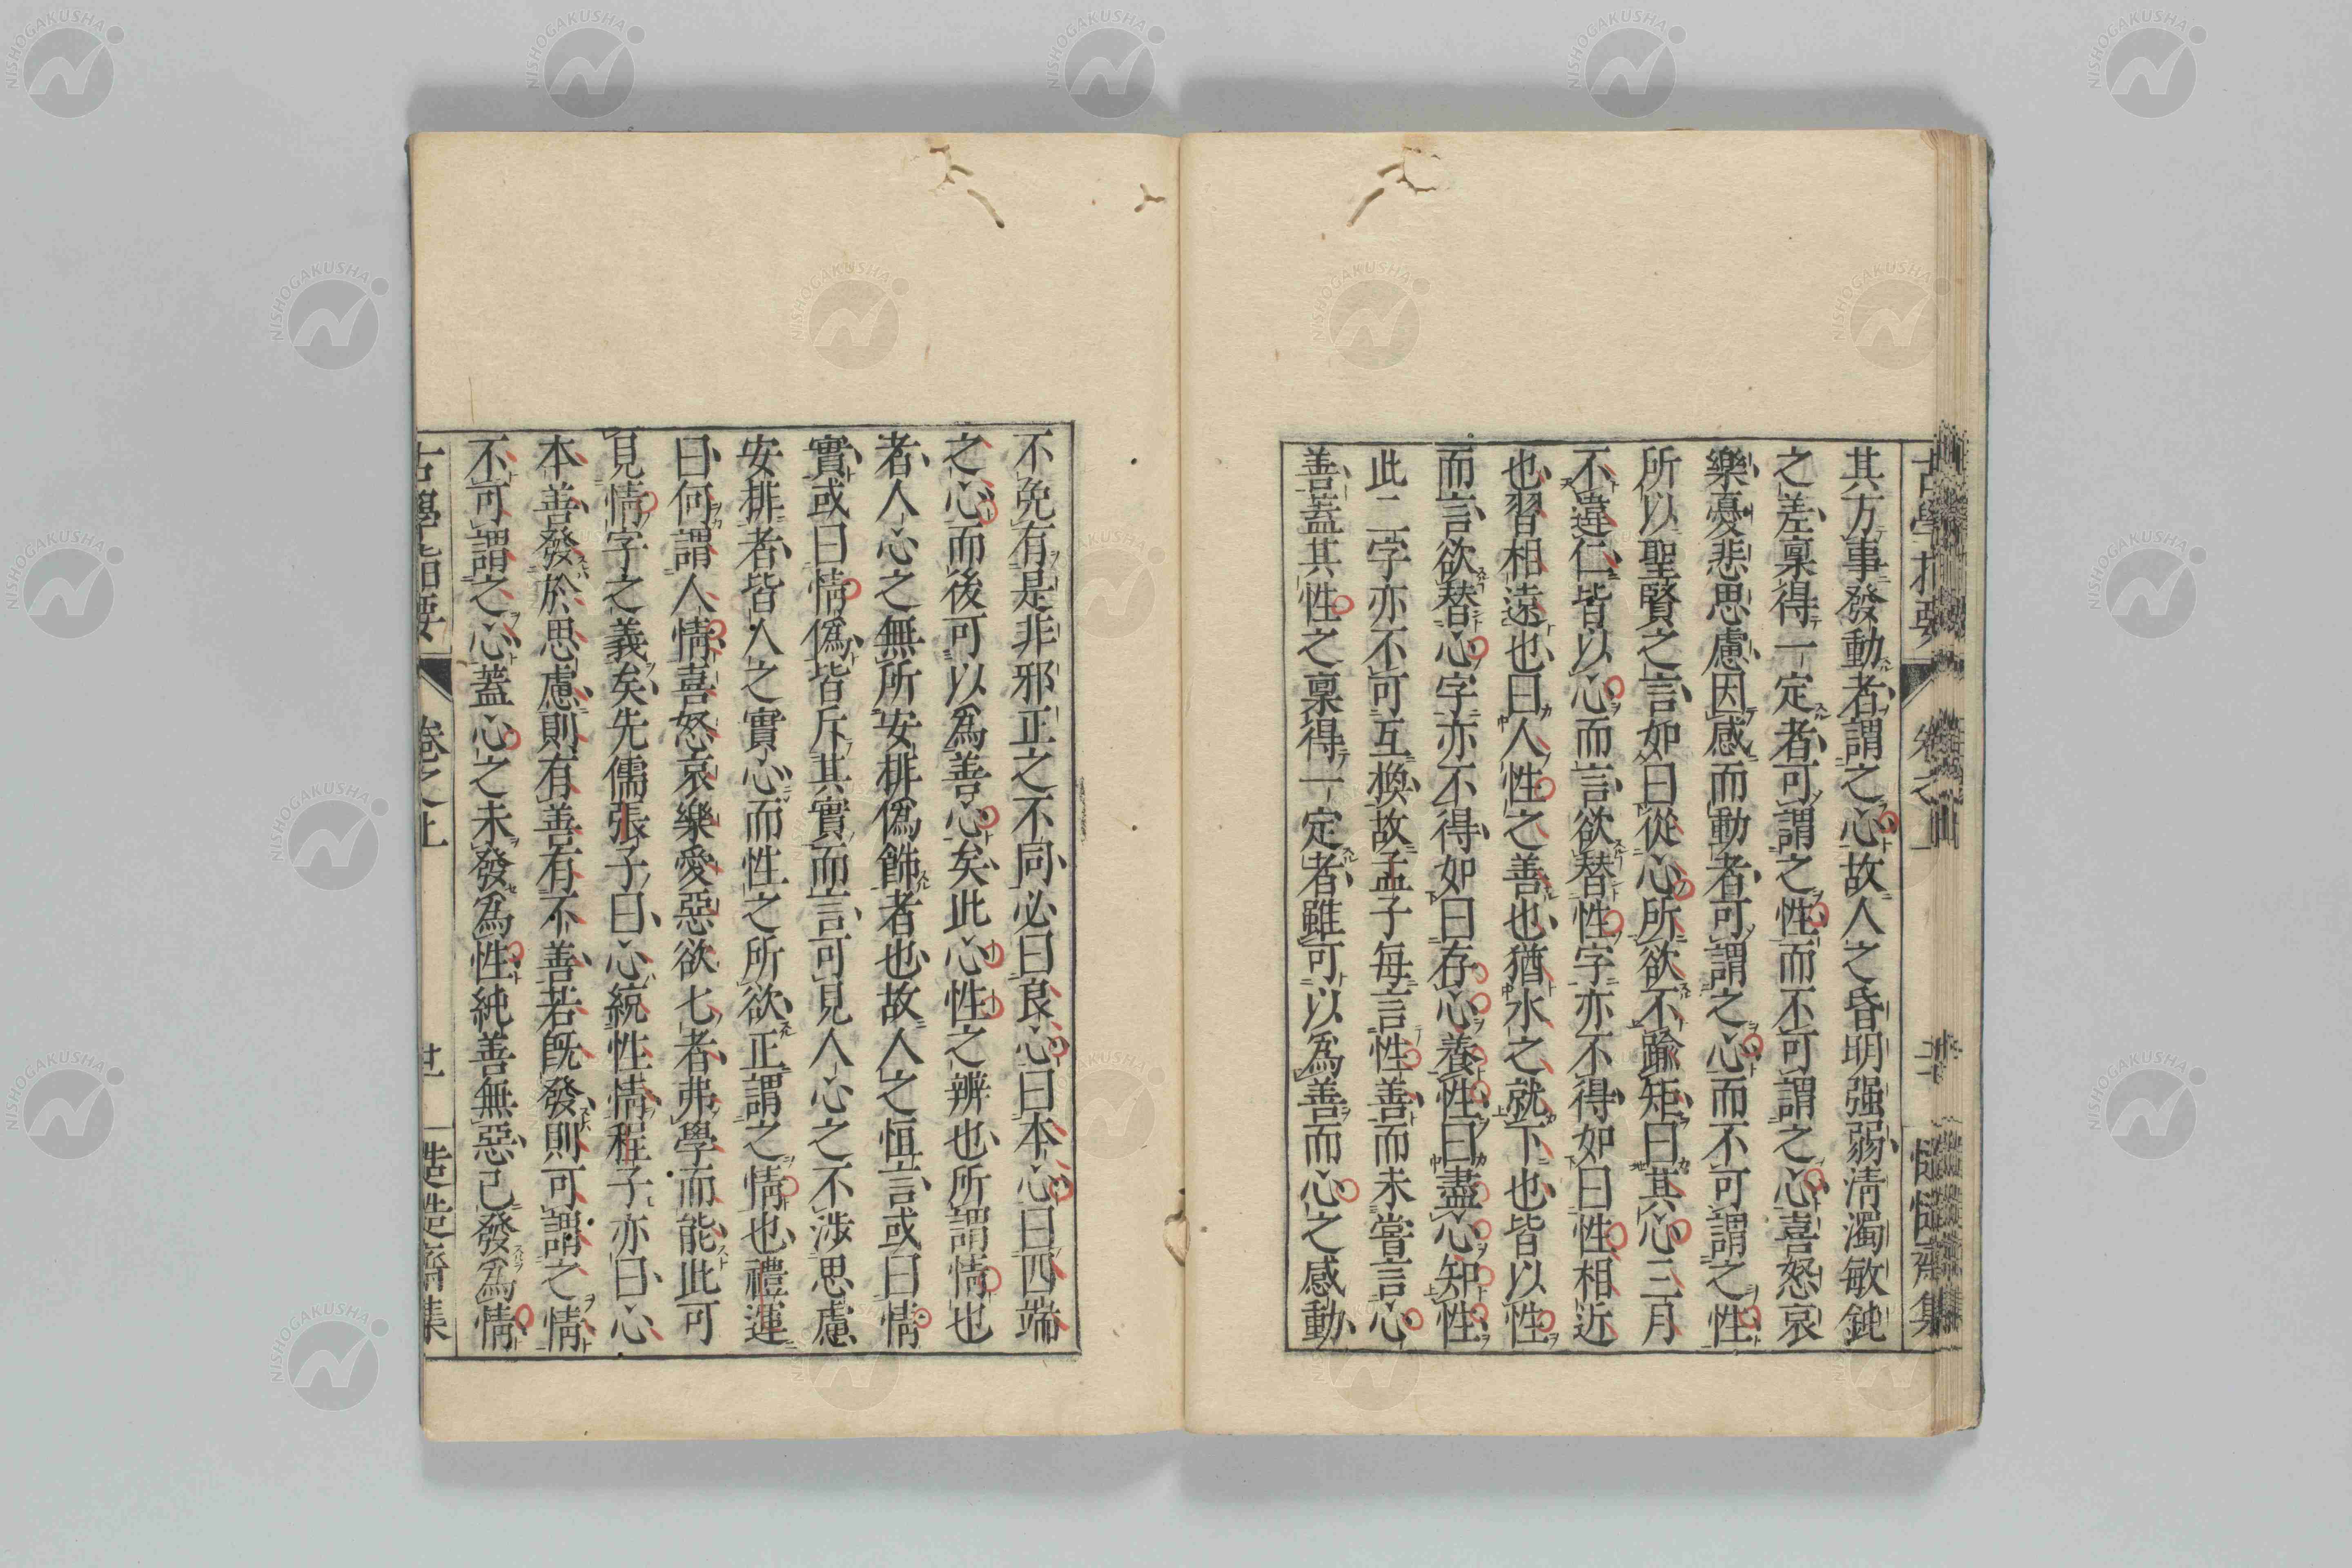 其方事發動者謂之心故人之昏明强弱淸濁敏鈍
之差稟得一定者可謂之性而不可謂之心喜怒哀
樂憂悲思慮因感而動者可謂之心而不可謂之性
所以聖賢之言如曰從心所欲不踰矩曰其心三月
不違仁皆以心而言欲替性字亦不得如曰性相近
也習相遠也曰人性之善也猶水之就下也皆以性
而言欲替心字亦不得如曰存心養性曰盡心知性
此二字亦不可互換故孟子每言性善而未嘗言心
善蓋其性之稟得一定者雖可以爲善而心之感動
不免有是非邪正之不同必曰良心曰本心曰四端
之心而後可以爲善心矣此心性之辨也所謂情也
者人心之無所安排僞飾者也故人之恒言或曰情
實或曰情僞皆斥其實而言可見人心之不涉思慮
安排者皆人之實心而性之所欲正謂之情也禮運
曰何謂人情喜怒哀樂愛惡欲七者弗學而能此可
見情字之義矣先儒張子曰心統性情程子亦曰心
本善發於思慮則有善有不善若旣發則可謂之情
不可謂之心蓋心之未發爲性純善無惡已發爲情
古學指要
卷之上
廿一
慥慥齋集
NISHOGAKUSHA